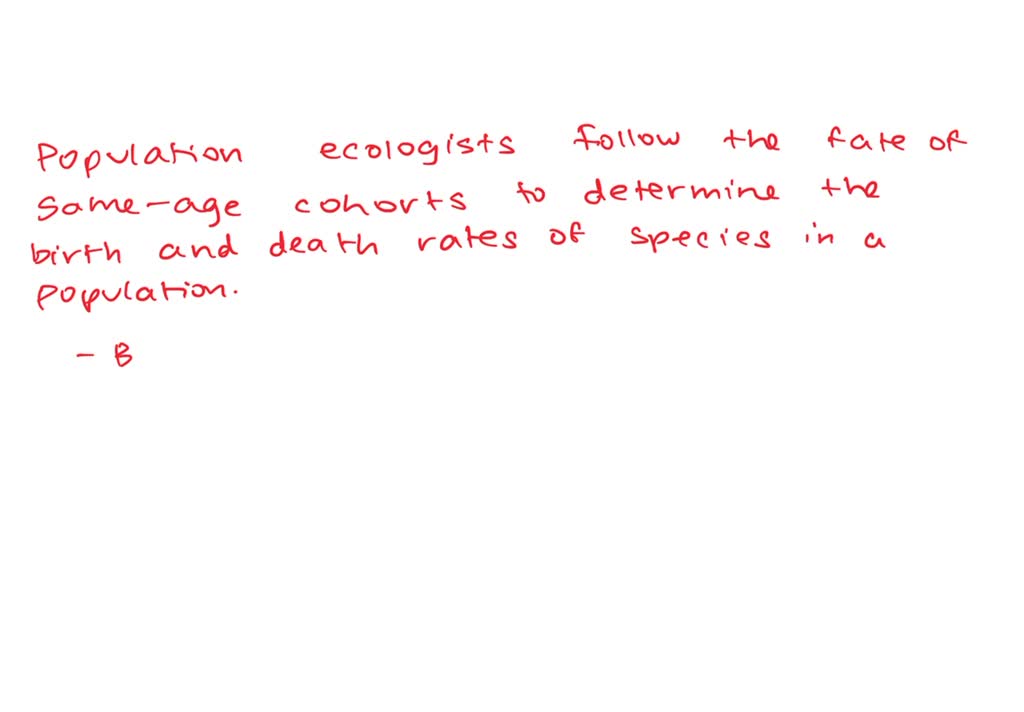 Population ecologists follow the fate of
same-age cohorts to determine the
birth and death rates of species in a
population.
- B